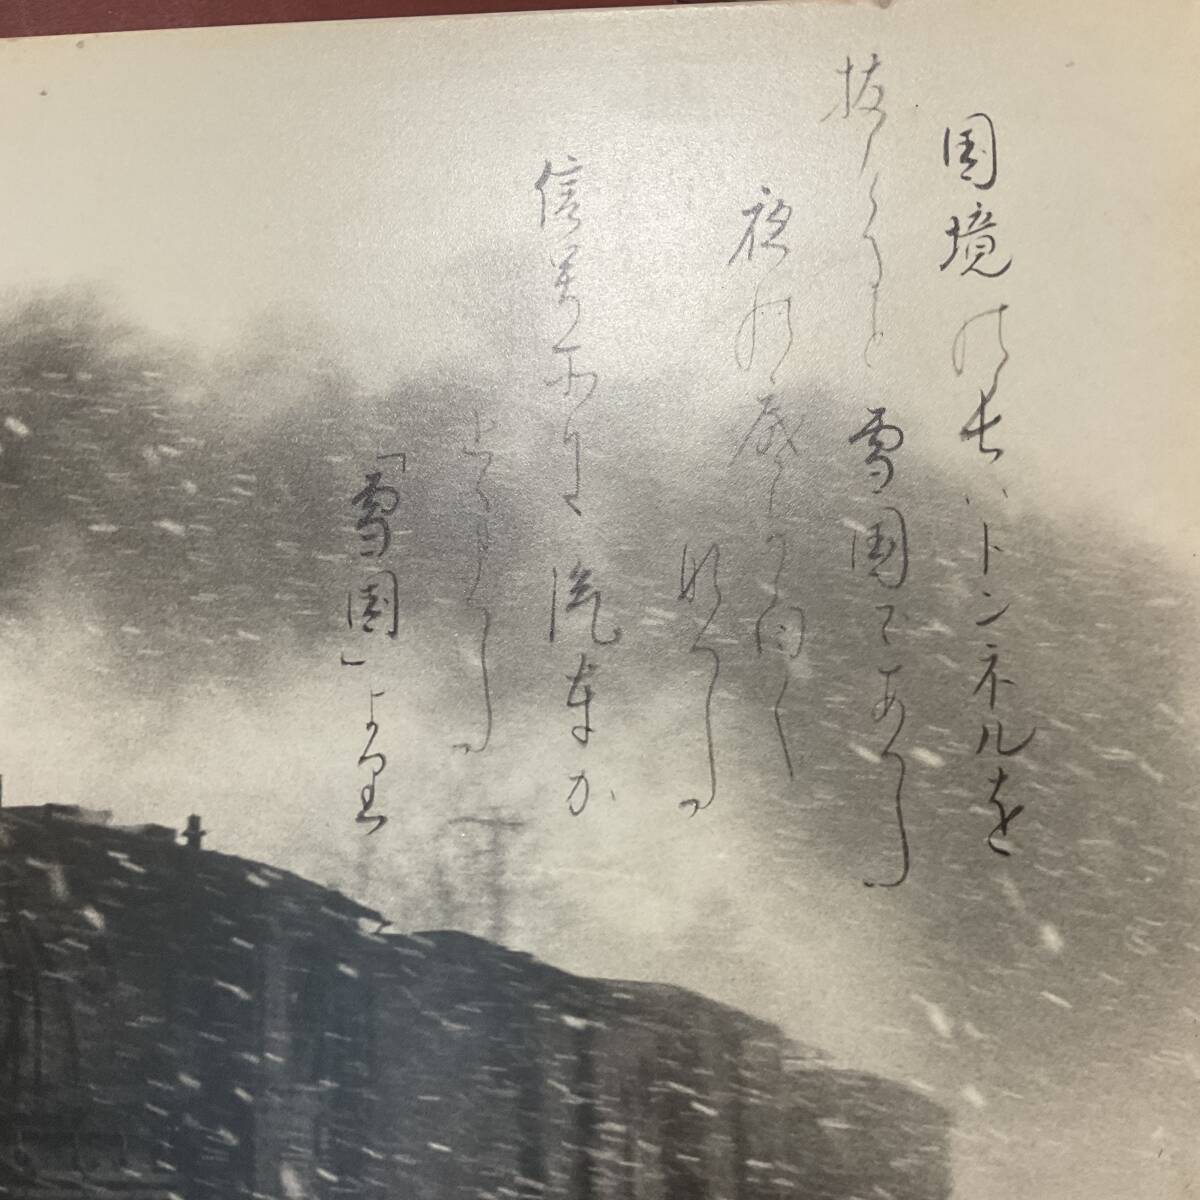 国境の長いトンネルを
抜けると雪国であつた。
夜の底が白く
なつた。
信号所に汽車が
止まつた。
「雪国」より